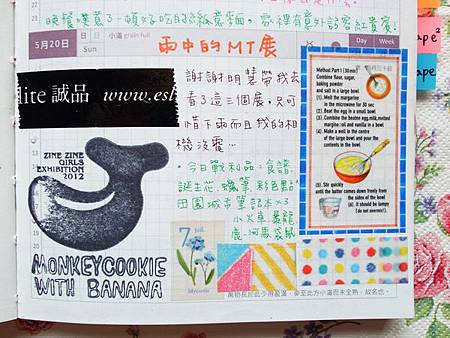 晚餐噗煮了一頓好吃的紙意麵。家裡有意外訪客紅貴賓!
5月20日
日
Sun
小滿 grain full
雨中的MT展
Day
Week
ape²
ape
lite 誠品 www.esl
謝謝明慧帶我去
看了這三個展,只可
惜下雨而且我的相
機沒電…
ZINE ZINE
GIRLS
EXHIBITION
2012
MONKEYCOOKIE
WITH BANANA
•今日戰利品:食譜.
誕生花.蠟筆彩色點.
田園城市筆記本×3
小火車.暴龍
鹿.河馬.袋鼠
7 juil.
Myosotis
Method Part 1 (30min)
Combine flour, sugar,
baking powder
and salt in a large bowl
(1). Melt the margarine
in the microwave for 30 sec
(2). Beat the egg in a small bowl
(3). Combine the beaten egg,milk,melted
margarine: oil and vanilla in a bowl
(4). Make a well in the centre
of the large bowl and pour the
contents in the bowl
(5). Stir quickly
until the batter comes down freely from
the sides of the bowl
(6). It should be lumpy
(do not overmix!).
萬物長於此少得盈滿,麥至此方小滿而未全熟,故名也。